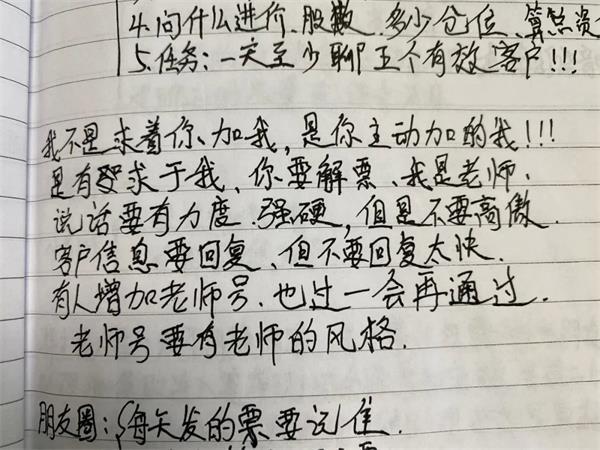 4.问什么进价、股数、多少仓位、算总资
5.任务:一天至少聊五个有效客户!!!
我不是求着你、加我,是你主动加的我!!!
是有求于我、你要解票、我是老师.
说话要有力度.强硬,但是不要高傲.
客户信息要回复、但不要回复太快.
有人增加老师号、也过一会再通过.
老师号要有老师的风格.
朋友圈:每天发的票要记住.